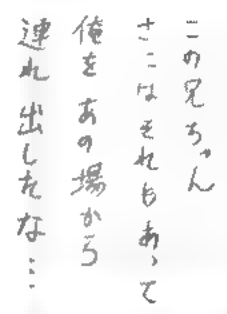 この兄ちゃん
さこはそれもあって
俺をあの場から
連れ出したな…